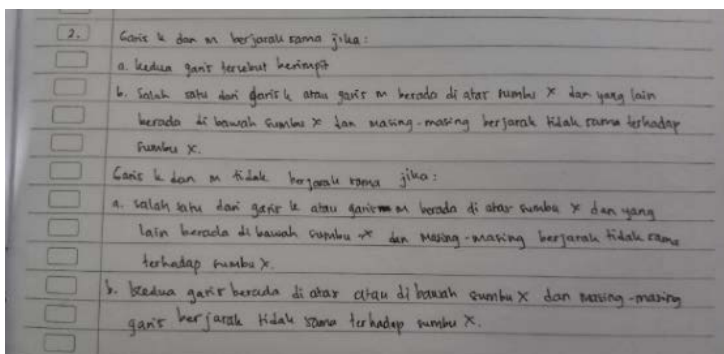 2. Garis k dan m berjarak sama jika:
a. kedua garis tersebut berimpit
b. Salah satu dari garis k atau garis m berada di atas sumbu X dan yang lain
berada di bawah sumbu X dan masing-masing berjarak tidak sama terhadap
sumbu X.
Garis k dan m tidak berjarak sama jika:
a. salah satu dari garis k atau garis m berada di atas sumbu X dan yang
lain berada di bawah sumbu X dan masing-masing berjarak tidak sama
terhadap sumbu X.
b. kedua garis berada di atas atau di bawah sumbu X dan masing-masing
garis berjarak tidak sama terhadap sumbu X.